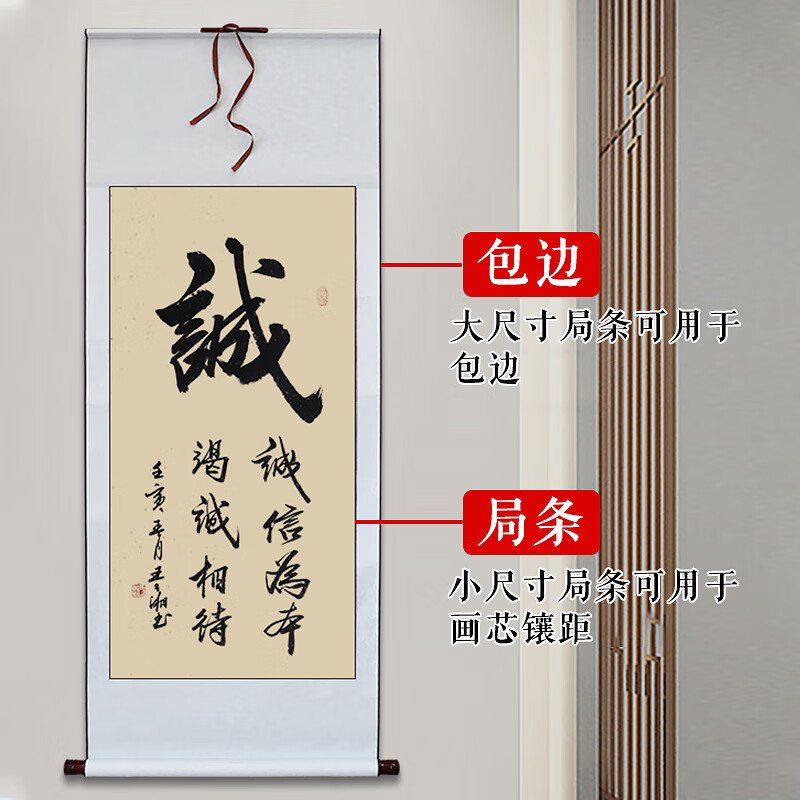 誠
誠信為本
竭誠相待
壬寅
包边
大尺寸局条可用于
包边
局条
小尺寸局条可用于
画芯镶距